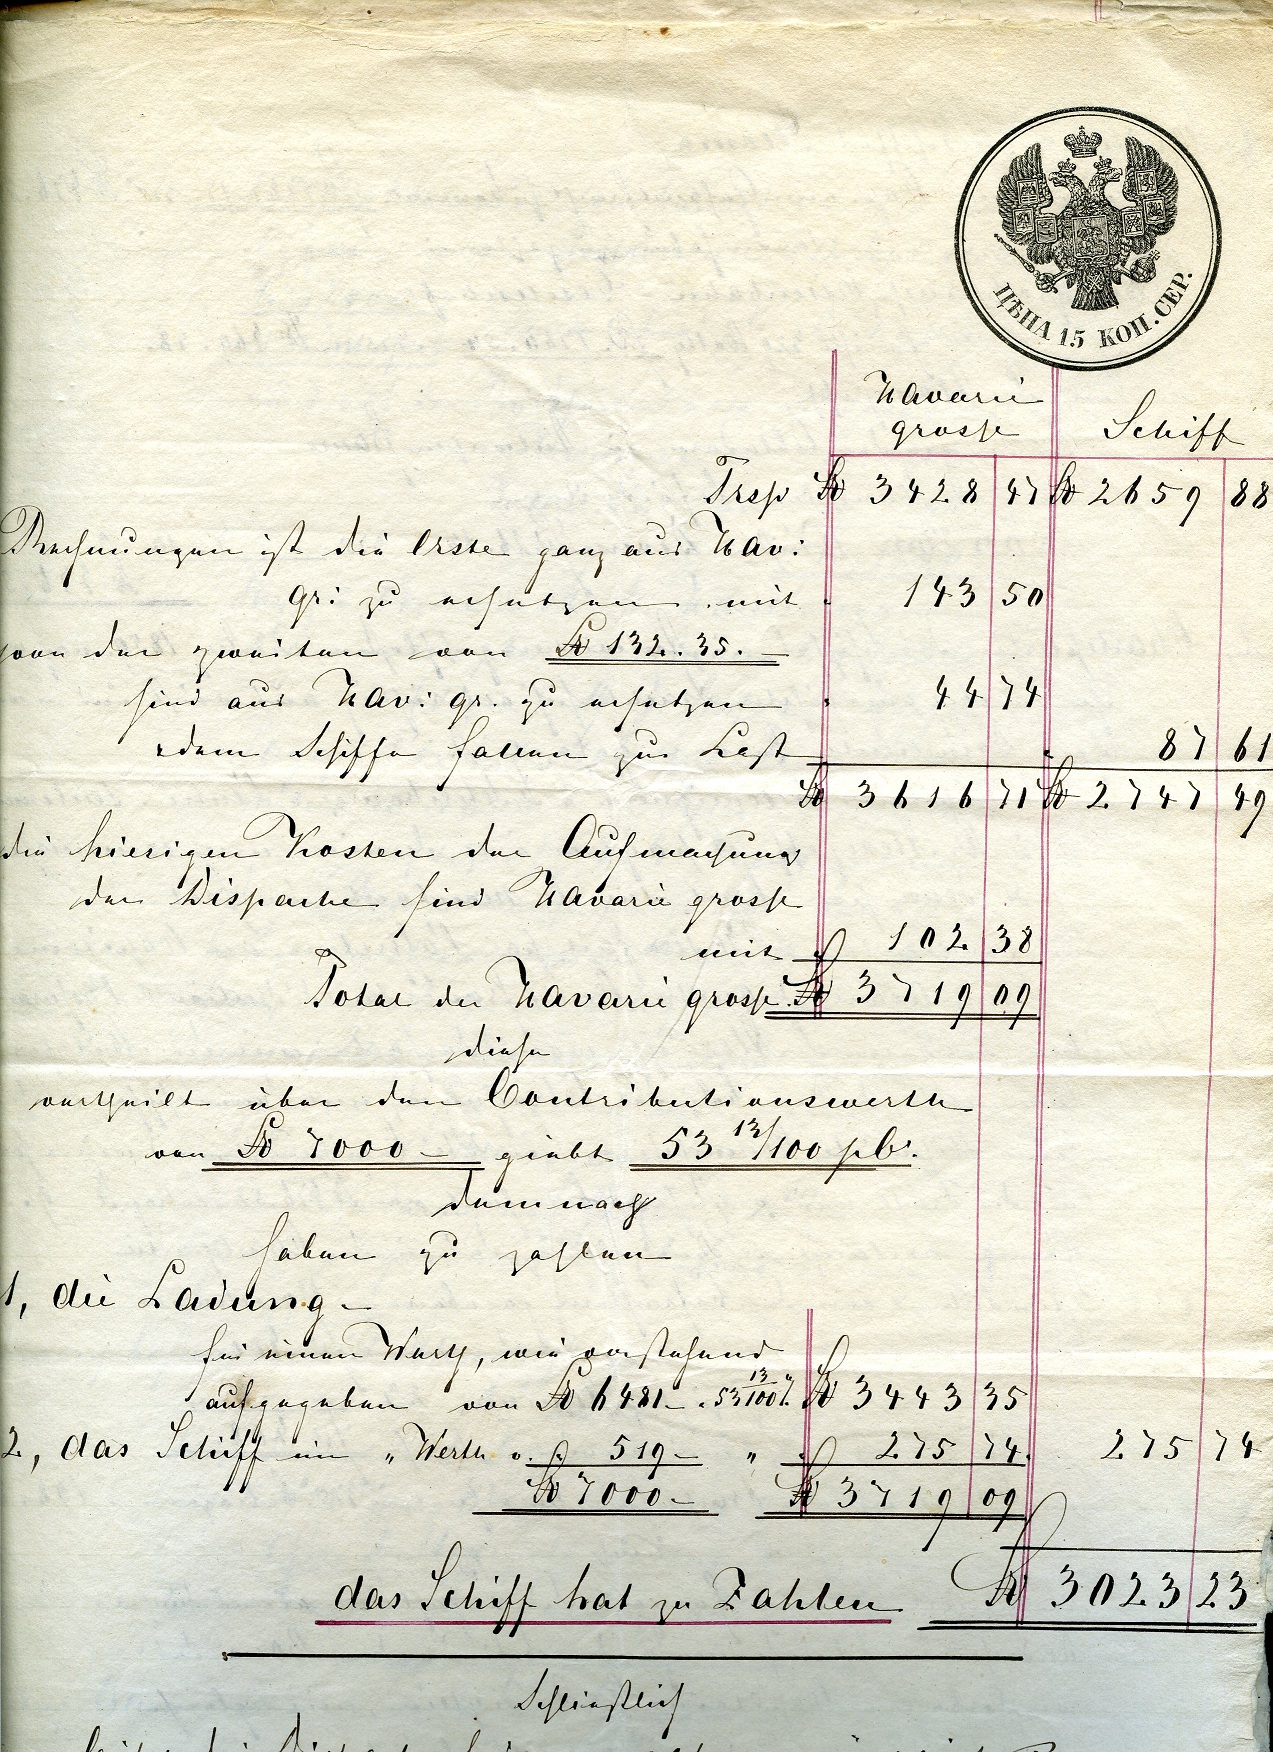 ЦѢНА 15 КОП. СЕР.
Havarie
grosse Schiff
Trsp Ro 3428 47 Ro 2659 88
Rechnungen ist die erste ganz aus Hav:
gr: zu ersetzen mit 143 50
von der zweiten von Ro 132. 35.
sind aus Hav: gr. zu ersetzen 44 74
dem Schiffe fallen zur Last 87 61
Ro 3616 71 Ro 2747 49
die hierigen Kosten der Aufmachung
der Dispache sind Havarie grosse
mit 102 38
Total der Havarie grosse Ro 3719 09
diese
vertheilt über den Contributionswerth
von Ro 7000 – giebt 53 13/100 pCt.
demnach
haben zu zahlen
1, die Ladung –
für einen Werth, wie vorstehend
aufgegeben von Ro 6481 – 53 13/100 % Ro 3443 35
2, das Schiff im " Werth v. " 519 – " 275 74 275 74
Ro 7000 – Ro 3719 09
das Schiff hat zu Zahlen Ro 3023 23
Schließlich